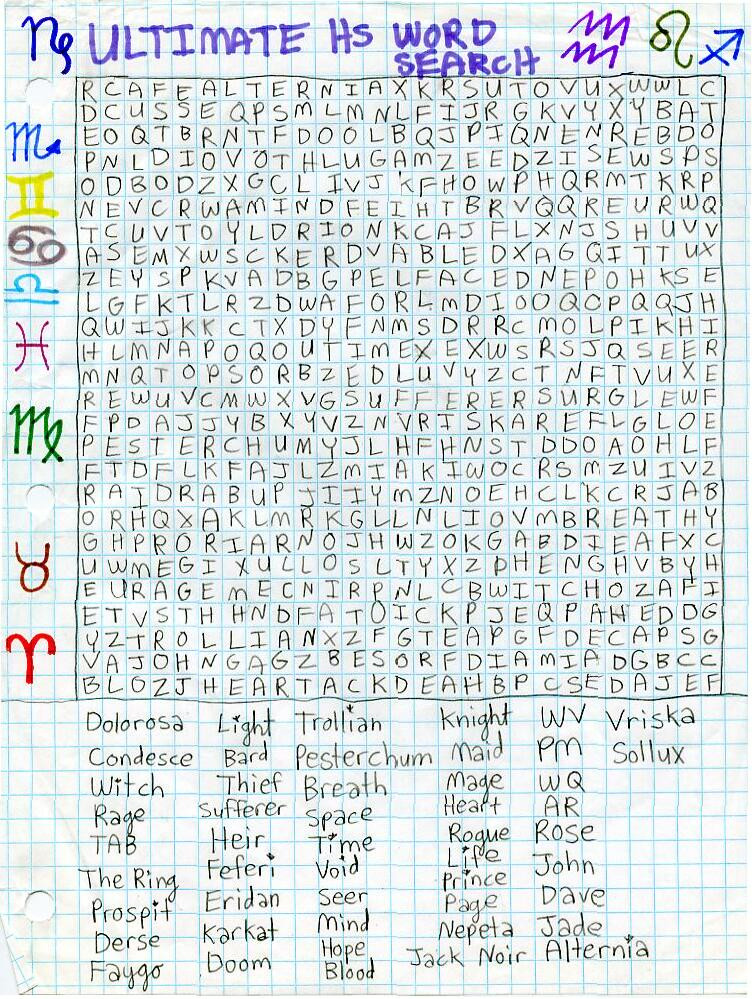 ULTIMATE HS WORD
SEARCH
R C A F E A L T E R N I A X K R S U T O V U X W W L C
D C U S S E Q P S M L M N L F I J R G K V Y X Y B A T
E O Q T B R N T F D O O L B Q J P I Q N E N R E B D O
P N L D I O V O T H L U G A M Z E E D Z I S E W S P S
O D B O D Z X G C L I V J K F H O W P H Q R M T K R P
N E V C R W A M I N D F E I H T B R V Q Q R E U R W Q
T C U V T O Y L D R I O N K C A J F L X N J S H U V V
A S E M X W S C K E R D V A B L E D X A G Q I T T U X
Z E Y S P K V A D B G P E L F A C E D N E P O H K S E
L G F K T L R Z D W A F O R L M D I O O Q C P Q Q J H
Q W I J K K C T X D Y F N M S D R R C M O L P I K H I
H L M N A P O Q O U T I M E X E X W S R S J Q S E E R
M N Q T O P S O R B Z E D L U V Y Z C T N F T V U X E
R E W U V C M W X V G S U F F E R E R S U R G L E W F
F P D A J J Y B X Y V Z N V R I S K A R E F L G L O E
P E S T E R C H U M Y J L H F H N S T D D O A O H L F
F T D F L K F A J L Z M I A K I W O C R S M Z U I V Z
R A I D R A B U P J I I Y M Z N O E H C L K C R J A B
O R H Q X A K L M R K G L L N L I O V M B R E A T H Y
G H P R O R I A R N O J H W Z O K G A B D I E A F X C
U W M E G I X U L L O S L T Y X Z P H E N G H V B Y H
E U R A G E M E C N I R P N L C B W I T C H O Z A F I
E T V S T H H N D F A T O I C K P J E Q P A H E D D G
Y Z T R O L L I A N X Z F G T E A P G F D E C A P S G
V A J O H N G A G Z B E S O R F D I A M I A D G B C C
B L O Z J H E A R T A C K D E A H B P C S E D A J E F
Dolorosa Light Trollian Knight WV Vriska
Condesce Bard Pesterchum Maid PM Sollux
Witch Thief Breath Mage WQ
Rage Sufferer Space Heart AR
TAB Heir Time Rogue Rose
The Ring Feferi Void Life John
Prospit Eridan Seer Prince Dave
Derse Karkat Mind Page Jade
Faygo Doom Hope Nepeta Alternia
Blood Jack Noir